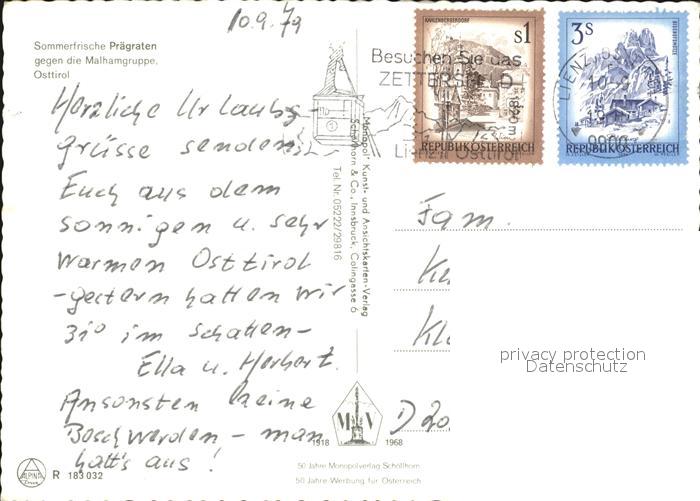 10.9.79
Sommerfrische Prägraten
gegen die Malhamgruppe,
Osttirol
Herzliche Urlaubs-
grüsse senden
Euch aus dem
sonnigen u. sehr
warmen Osttirol
-gestern hatten wir
31° im Schatten-
Ella u. Herbert.
Ansonsten keine
Beschwerden - man
hält's aus!
ALPINA
R 183 032
Monopol" Kunst- und Ansichtskarten-Verlag
Schöllhorn & Co., Innsbruck, Colingasse 6
Tel. Nr. 05222/29816
M V
1918 1968
50 Jahre Monopolverlag Schöllhorn
50 Jahre Werbung für Österreich
KAHLENBERGERDORF
S1
REPUBLIK ÖSTERREICH
3S
REPUBLIK ÖSTERREICH
Besuchen Sie das
ZETTERS
1820 m
Lienz Osttirol
LIENZ
10.-9
9900
Fam.
Kl
D 20
privacy protection
Datenschutz